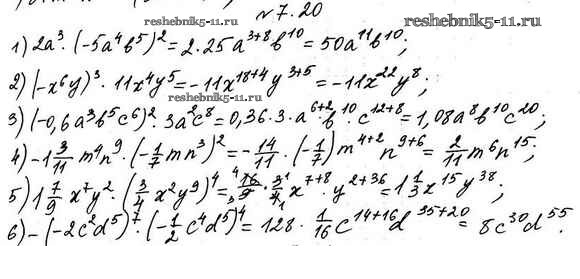 №7.20 reshebnik5-11.ru
1) 2a³ · (-5a⁴b⁵)² = 2·25a³⁺⁸b¹⁰ = 50a¹¹b¹⁰;
2) (-x⁶y)³ · 11x⁴y⁵ = -11x¹⁸⁺⁴y³⁺⁵ = -11x²²y⁸;
reshebnik5-11.ru
3) (-0,6a³b⁵c⁶)² · 3a²c⁸ = 0,36·3·a⁶⁺²·b¹⁰·c¹²⁺⁸ = 1,08a⁸b¹⁰c²⁰;
4) -1 3/11 m⁴n⁹ · (-1/7 mn³)² = -14/11 · (-1/7) m⁴⁺²n⁹⁺⁶ = 2/11 m⁶n¹⁵;
5) 1 7/9 x⁷y² · (3/4 x²y⁹)⁴ = 16/9 · 3/4 x⁷⁺⁸ · y²⁺³⁶ = 1 1/3 x¹⁵y³⁸;
6) -(-2c²d⁵)⁷ · (-1/2 c⁴d⁵)⁴ = 128 · 1/16 c¹⁴⁺¹⁶d³⁵⁺²⁰ = 8c³⁰d⁵⁵.
reshebnik5-11.ru